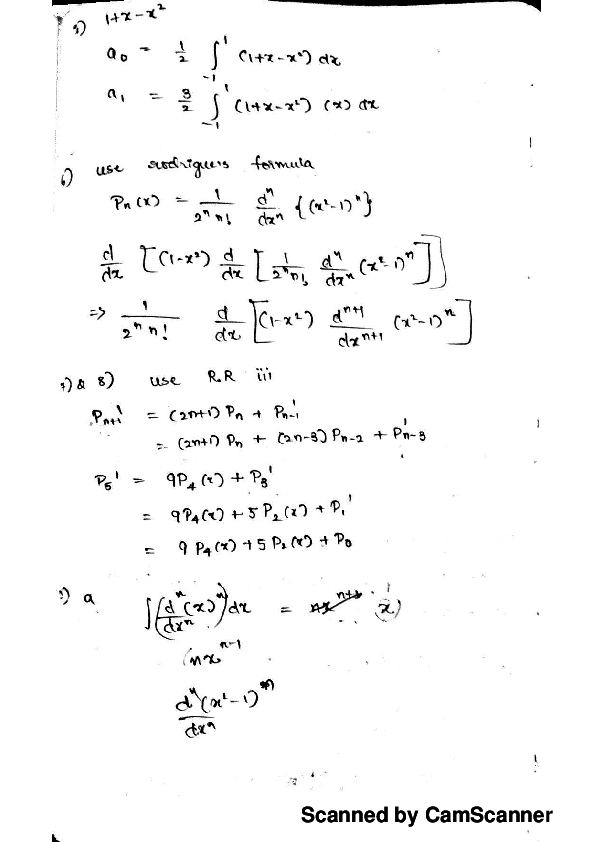 5) 1+x-x²
a₀ = 1/2 ∫₋₁¹ (1+x-x²) dx
a₁ = 3/2 ∫₋₁¹ (1+x-x²) (x) dx
6) use rodrigues formula
Pₙ(x) = 1/(2ⁿ n!) dⁿ/dxⁿ {(x²-1)ⁿ}
d/dx [(1-x²) d/dx [1/(2ⁿ n!) dⁿ/dxⁿ (x²-1)ⁿ]]
⇒ 1/(2ⁿ n!) d/dx [(1-x²) dⁿ⁺¹/dxⁿ⁺¹ (x²-1)ⁿ]
7) & 8) use R.R iii
Pₙ₊₁' = (2n+1) Pₙ + Pₙ₋₁'
= (2n+1) Pₙ + (2n-3) Pₙ₋₂ + P'ₙ₋₃
P₅' = 9P₄(x) + P₃'
= 9P₄(x) + 5P₂(x) + P₁'
= 9P₄(x) + 5P₂(x) + P₀
a ∫(dⁿ/dxⁿ (x)ⁿ) dx =
(nxⁿ⁻¹
dⁿ/dxⁿ (x²-1)
Scanned by CamScanner